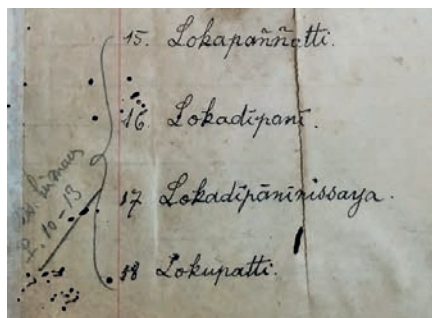 15. Lokapaññatti.
16. Lokadīpanī.
17 Lokadīpānīnissaya.
18 Lokupatti.
P. 10-13